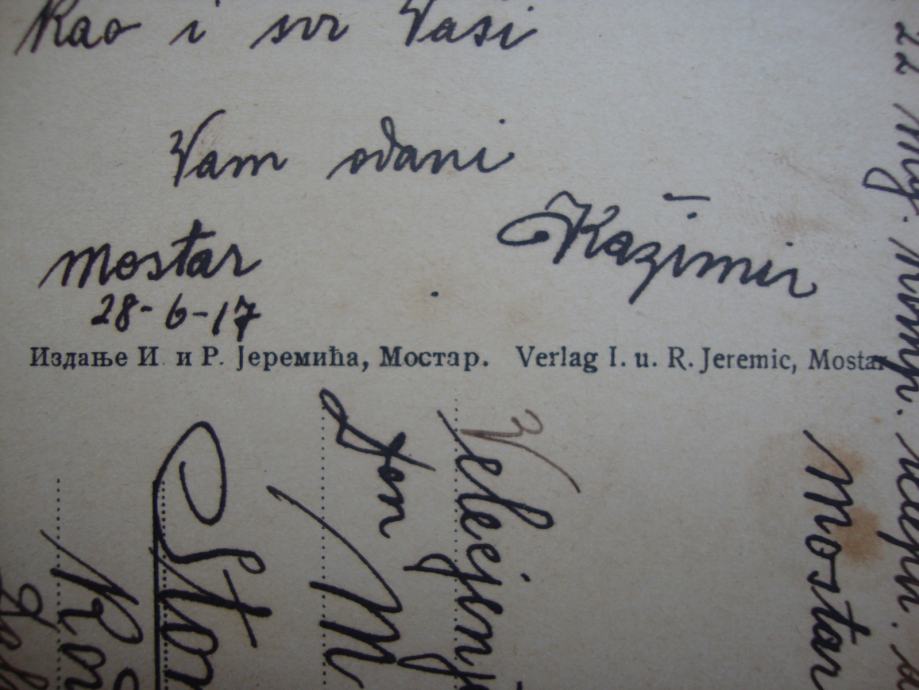 Kao i svi Vaši
Vam odani
Kazimir
Mostar
28-6-17
Издање И. и Р. Јеремића, Мостар. Verlag I. u. R. Jeremic, Mostar
Velecjenj
Don M
Stor
Mostar
22